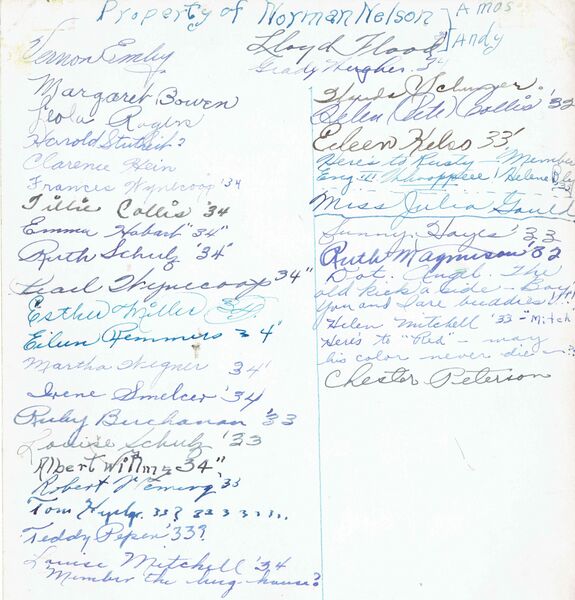 Property of Norman Nelson
Amos
Andy
Vernon Emley
Lloyd Flood
Grady Hughes
Margaret Bowen
Leola Rogers
Harold
Clarence Hein
Frances Wynecoop '34
Tillie Collis '34
Emma Hobart "34"
Ruth Schulz '34
Wynecoop 34"
Esther Miller
Eileen Remmers 34'
Martha Wegner 34'
Irene Smelcer '34
Ruby Buchanan '33
Louise Schulz '33
Albert Willms 34"
Robert Fleming '33
Tom 33? 33 3 3? ?..
Teddy Pepin '33?
Louise Mitchell '34
Member the bug house?
Helen (Pete) Collis '32
Eileen Kelso 33'
Here's to Rusty - "Member
Eng III Whoopplee! Helene
Miss Julia Gould
Sunny Hayes '33
Ruth Magnuson '32
Dot. Angel. The
old kick a side - Boy
You and I are buddies!!!
Helen Mitchell '33 - "Mitch"
Here's to "Red" - may
his color never die -
Chester Peterson